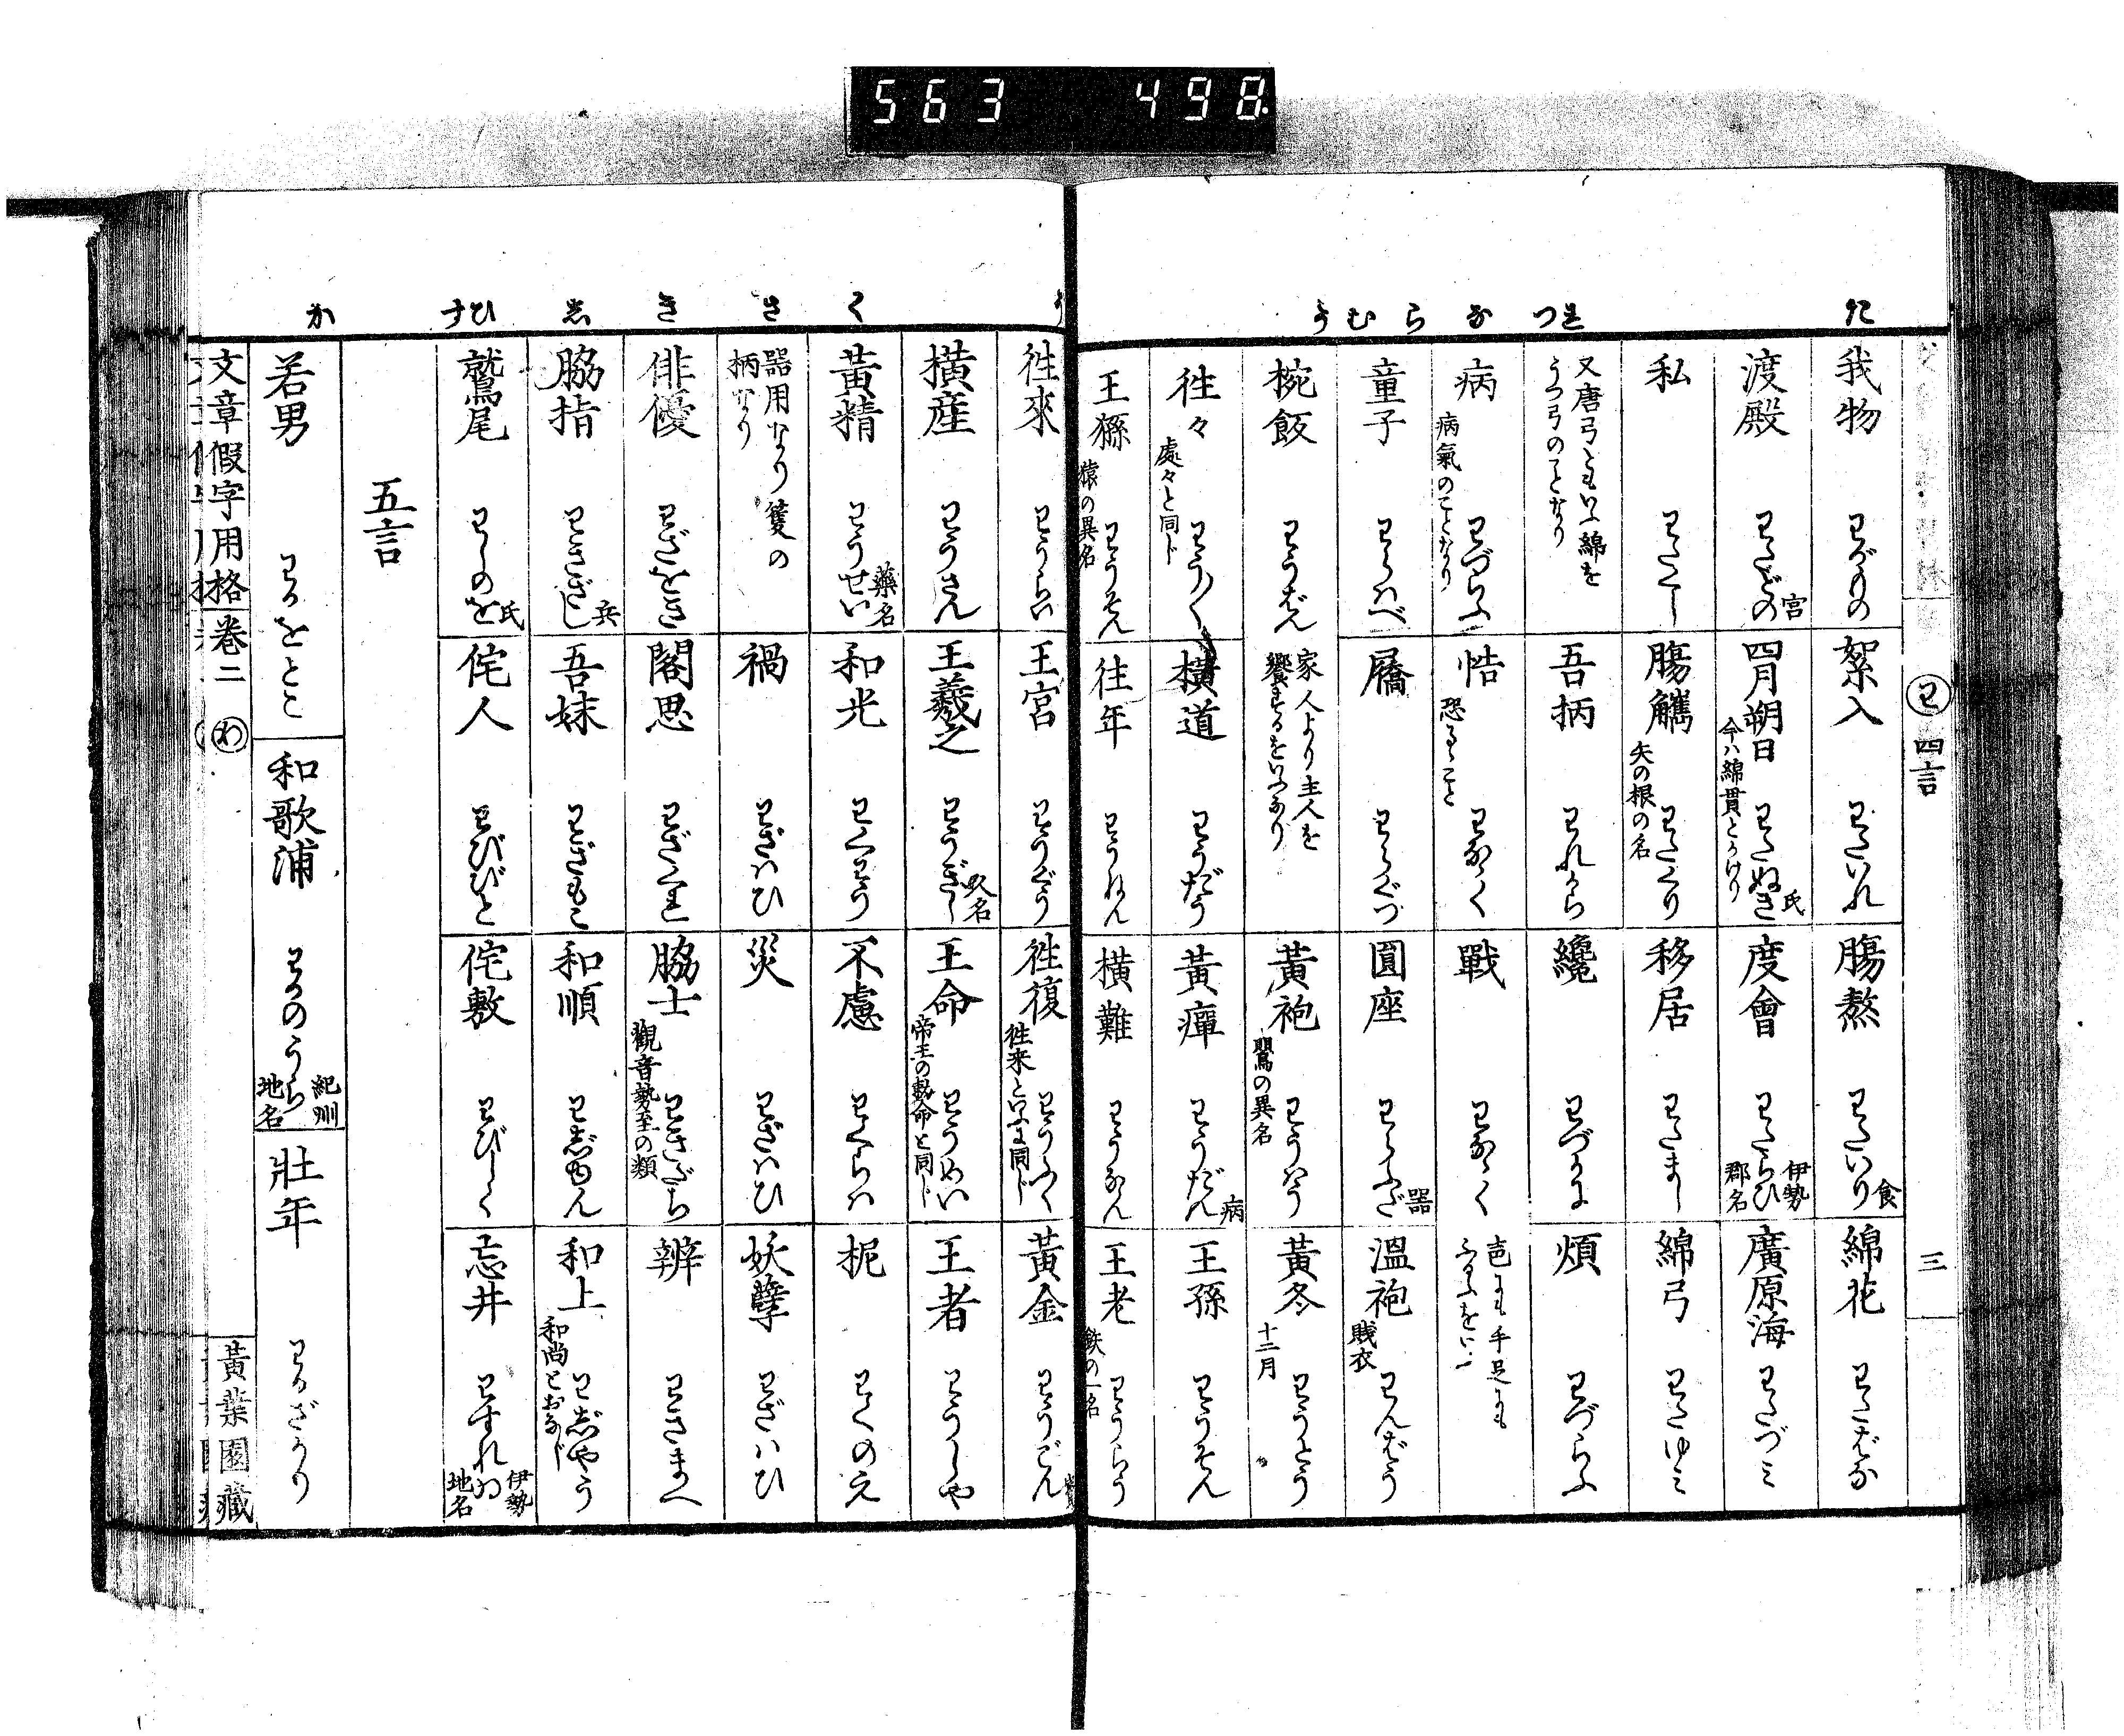 563 498
わ 四言 三
た
我物 わがもの
絮入 わたいれ
腸熬 わたいり 食
綿花 わたばな
渡殿 わたどの 宮
四月朔日 今ハ綿貫とかけり わたぬき 氏
度會 わたらひ 伊勢郡名
廣原海 わたづミ
私 わたくし
腸觿 矢の根の名 わたくり
移居 わたまし
綿弓 わたゆミ
つ
又唐弓ともいふ綿をうつ弓のことなり
吾柄 われから
纔 わづかに
煩 わづらふ
な
病 病氣のことなり わづらふ
悎 恐るゝこと わなゝく
戰 わなゝく
ら
童子 わらハべ
屩 わらぐづ
圓座 わらふざ 器
溫袍 賎衣 わんばう
む
椀飯 わうばん
家人より主人を饗するをいふなり
黃袍 鶯の異名 わうはう
黃冬 十二月 わうとう
う
往々 處々と同じ わう〳〵
橫道 わうだう
黃癉 わうだん 病
王孫 わうそん
王猻 猿の異名 わうそん
往年 わうねん
橫難 わうなん
王老 鉄の一名 わうらう
往來 わうらい
王宮 わうぐう
往復 往来といふに同じ わうふく
黃金 わうごん
橫産 わうさん
王羲之 わうぎし 人名
王命 帝王の勅命と同じ わうめい
王者 わうしや
く
黃精 わうせい 藥名
和光 わくわう
不慮 わくらハ
枙 わくのえ
さ
器用なり籰の柄なり
禍 わざハひ
災 わざハひ
妖孽 わざハひ
き
俳優 わざをき
閣思 わざくれ
脇士 觀音勢至の類 わきだち
辨 わきまへ
し
脇指 わきざし 兵
吾妹 わぎもこ
和順 わじゆん
和上 和尚とおなじ わじやう
ひす
鷲尾 わしのを 氏
侘人 わびびと
侘敷 わびしく
忘井 わすれゐ 伊勢地名
五言
か
若男 わかをとこ
和歌浦 わかのうら 紀州地名
壯年 わかざかり
文章假字用格 卷二 わ 黃葉園藏